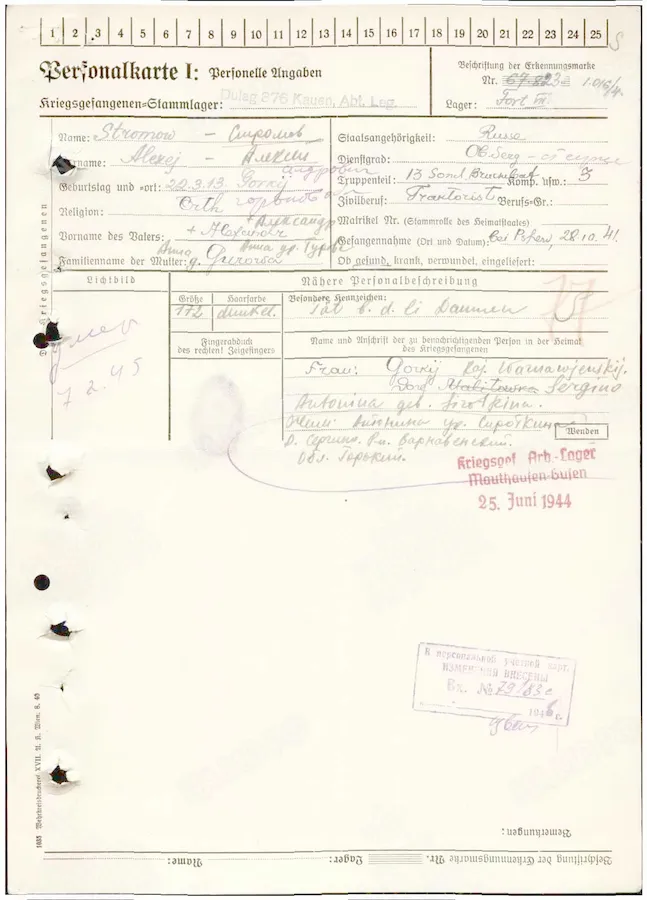 1 2 3 4 5 6 7 8 9 10 11 12 13 14 15 16 17 18 19 20 21 22 23 24 25
Personalkarte I: Personelle Angaben
Beschriftung der Erkennungsmarke
Nr.
Kriegsgefangenen-Stammlager: Dulag 376 Kauen, Abt. Lag.
Lager: Fort VI.
Name: Stromow — Стромов
Vorname: Alexej — Алексей
Geburtstag und -ort: 22.3.13. Gorkij
Religion: Orth
Vorname des Vaters: + Alexandr + Александр
Familienname der Mutter: Anna g. Анна ур.
Staatsangehörigkeit: Russe
Dienstgrad:
Truppenteil: 13 Komp. usw.: 3
Zivilberuf: Traktorist Berufs-Gr.:
Matrikel Nr. (Stammrolle des Heimatstaates)
Gefangennahme (Ort und Datum): bei 28.10.41.
Ob gesund, krank, verwundet, eingeliefert:
Des Kriegsgefangenen
Lichtbild
умер
7 2.45
Nähere Personalbeschreibung
Größe Haarfarbe
172 dunkel.
Besondere Kennzeichen:
b. d. li Daumen
Fingerabdruck
des rechten! Zeigefingers
Name und Anschrift der zu benachrichtigenden Person in der Heimat
des Kriegsgefangenen
Frau: Gorkij Raj. Warnawjenskij.
Dorf Sergino
Antonina geb. Sirotkina.
Антонина ур. Сироткина
Д. Сергино. Рн. Варнавенский.
Обл. Горький.
Wenden
Kriegsgef. Arb.-Lager
Mauthausen-Gusen
25. Juni 1944
К персональной учетной карт.
ИЗМЕНЕНИЙ ВНЕСЕНЫ
Вх. №
194 г.
1085 Wehrkreisdruckerei XVII. U. K. Wien. 8. 40
Bemerkungen:
Name: Lager: Beschriftung der Erkennungsmarke Nr.